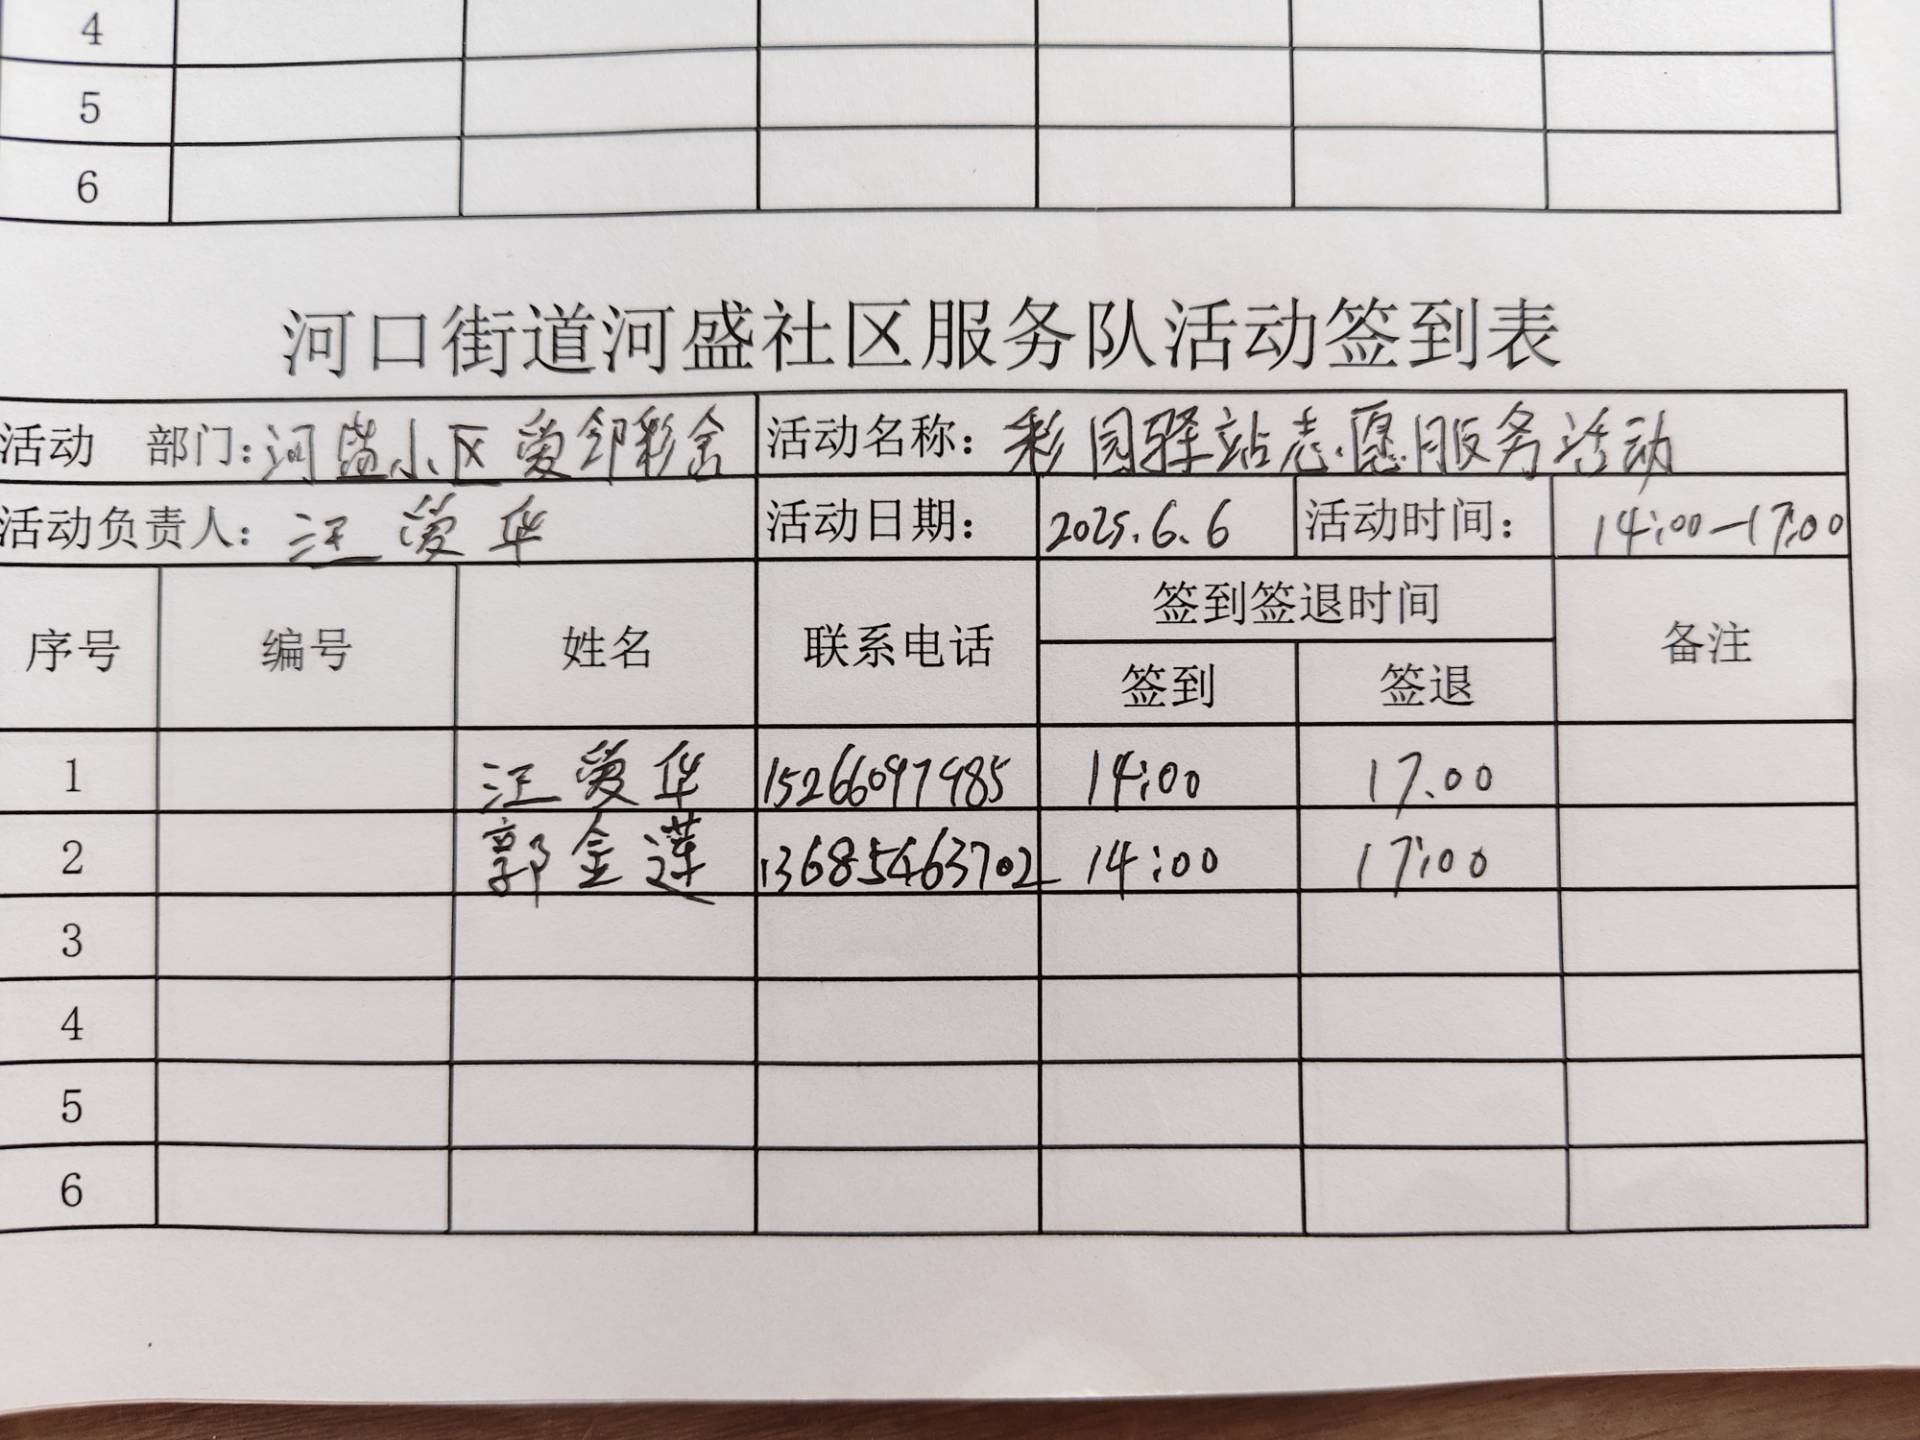 4
5
6
河口街道河盛社区服务队活动签到表
活动 部门：河盛小区爱邻彩舍 活动名称：彩园驿站志愿服务活动
活动负责人：汪爱华 活动日期： 2025.6.6 活动时间： 14:00—17:00
序号 编号 姓名 联系电话 签到签退时间 备注
签到 签退
1 汪爱华 15266097985 14:00 17.00
2 郭金莲 13685463702 14:00 17:00
3
4
5
6